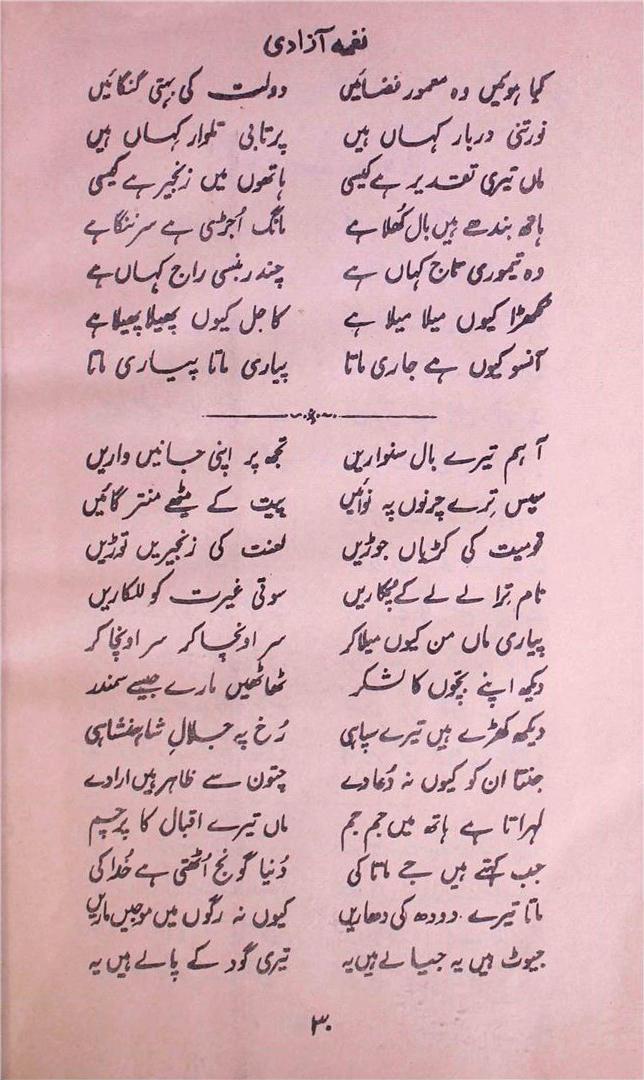 نغمہ آزادی
کیا ہوئیں وہ معمور فضائیں دولت کی بہتی گنگائیں
نورتنی دربار کہاں ہیں پرتابی تلوار کہاں ہیں
ماں تیری تقدیر ہے کیسی ہاتھوں میں زنجیر ہے کیسی
ہاتھ بندھے ہیں بال کُھلا ہے مانگ اُجڑی ہے سر ننگا ہے
وہ تیموری تاج کہاں ہے چندر بنسی راج کہاں ہے
مکھڑا کیوں میلا میلا ہے کاجل کیوں پھیلا پھیلا ہے
آنسو کیوں ہے جاری ماتا پیاری ماتا پیاری ماتا
آ ہم تیرے بال سنواریں تجھ پر اپنی جانیں واریں
سیس تِرے چرنوں پہ نوائیں پریت کے میٹھے منتر گائیں
قومیت کی کڑیاں جوڑیں لعنت کی زنجیریں توڑیں
نام تِرا لے لے کے پکاریں سوتی غیرت کو للکاریں
پیاری ماں من کیوں میلا کر سر اونچا کر سر اونچا کر
دیکھ اپنے بچّوں کا لشکر ٹھاٹھیں مارے جیسے سمندر
دیکھ کھڑے ہیں تیرے سپاہی رُخ پہ جلالِ شاہنشاہی
جنتا ان کو کیوں نہ دُعا دے چتون سے ظاہر ہیں ارادے
لہراتا ہے ہاتھ میں جم جم ماں تیرے اقبال کا پرچم
جب کہتے ہیں جے ماتا کی دُنیا گونج اُٹھتی ہے خُدا کی
ماتا تیرے دودھ کی دھاریں کیوں نہ رگوں میں موجیں ماریں
جیوٹ ہیں یہ جیالے ہیں یہ تیری گود کے پالے ہیں یہ
۳۰